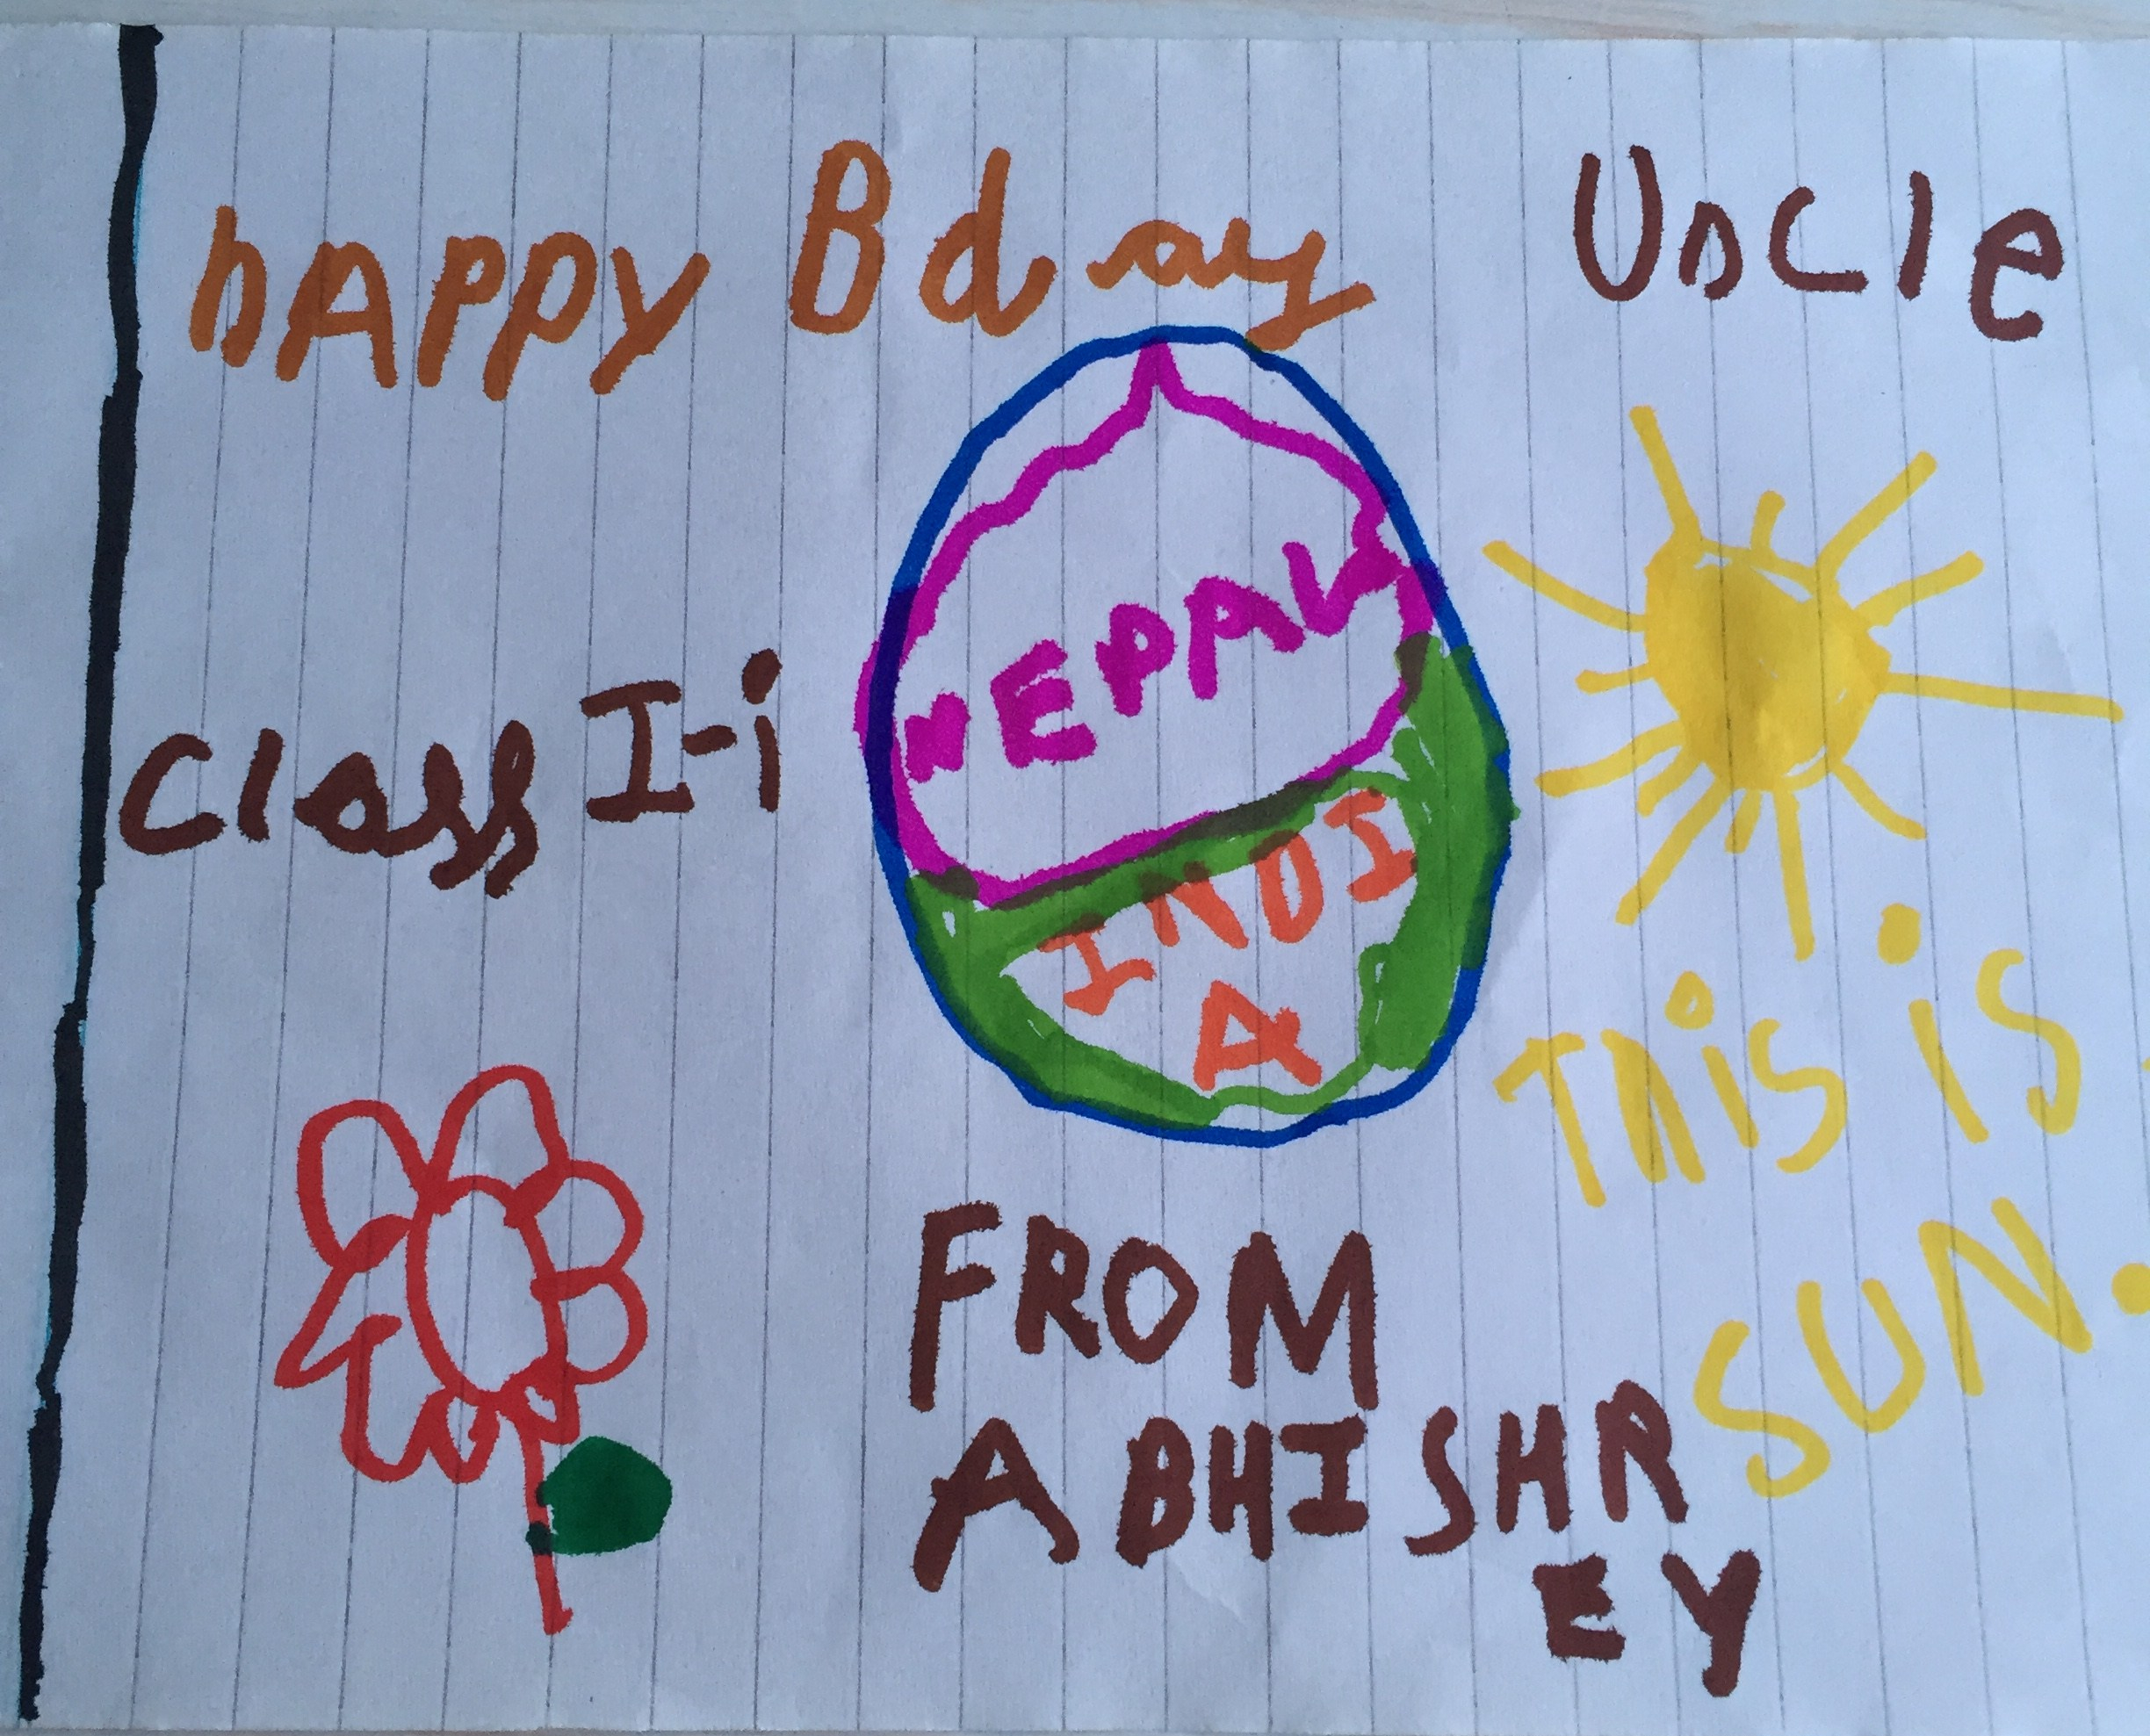 hAPPY Bday Uncle
NEPAL
Class I-i
INDI
A
THis is
SUN.
FROM
ABHISHR
EY